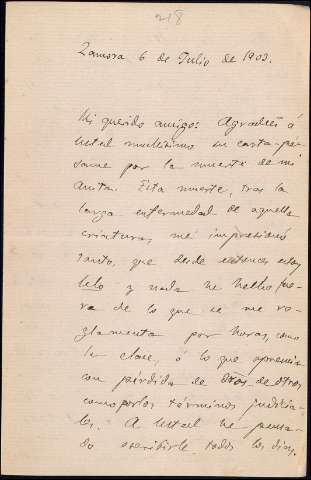 218
Zamora 6 de Julio de 1903.
Mi querido amigo: Agradecí á
usted muchísimo su carta-pé-
same por la muerte de mi
Anita. Esta muerte, tras la
larga enfermedad de aquella
criatura, me impresionó
tanto, que desde entonces estoy
lelo y nada he hecho fue-
ra de lo que se me re-
glamenta por horas, como
la clase, ó lo que apremia
con pérdida de de otros,
como por los términos judicia-
les. A usted he pensa-
do escribirle todos los días,